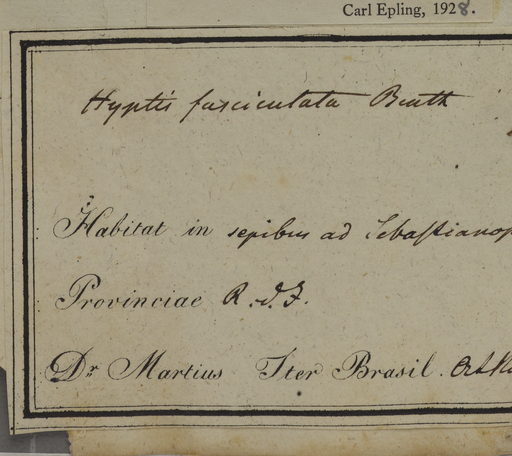 Carl Epling, 1928.
Hyptis fasciculata Benth
Habitat in sepibus ad Sebastianop
Provinciae R. d. J.
Dr Martius Iter Brasil.